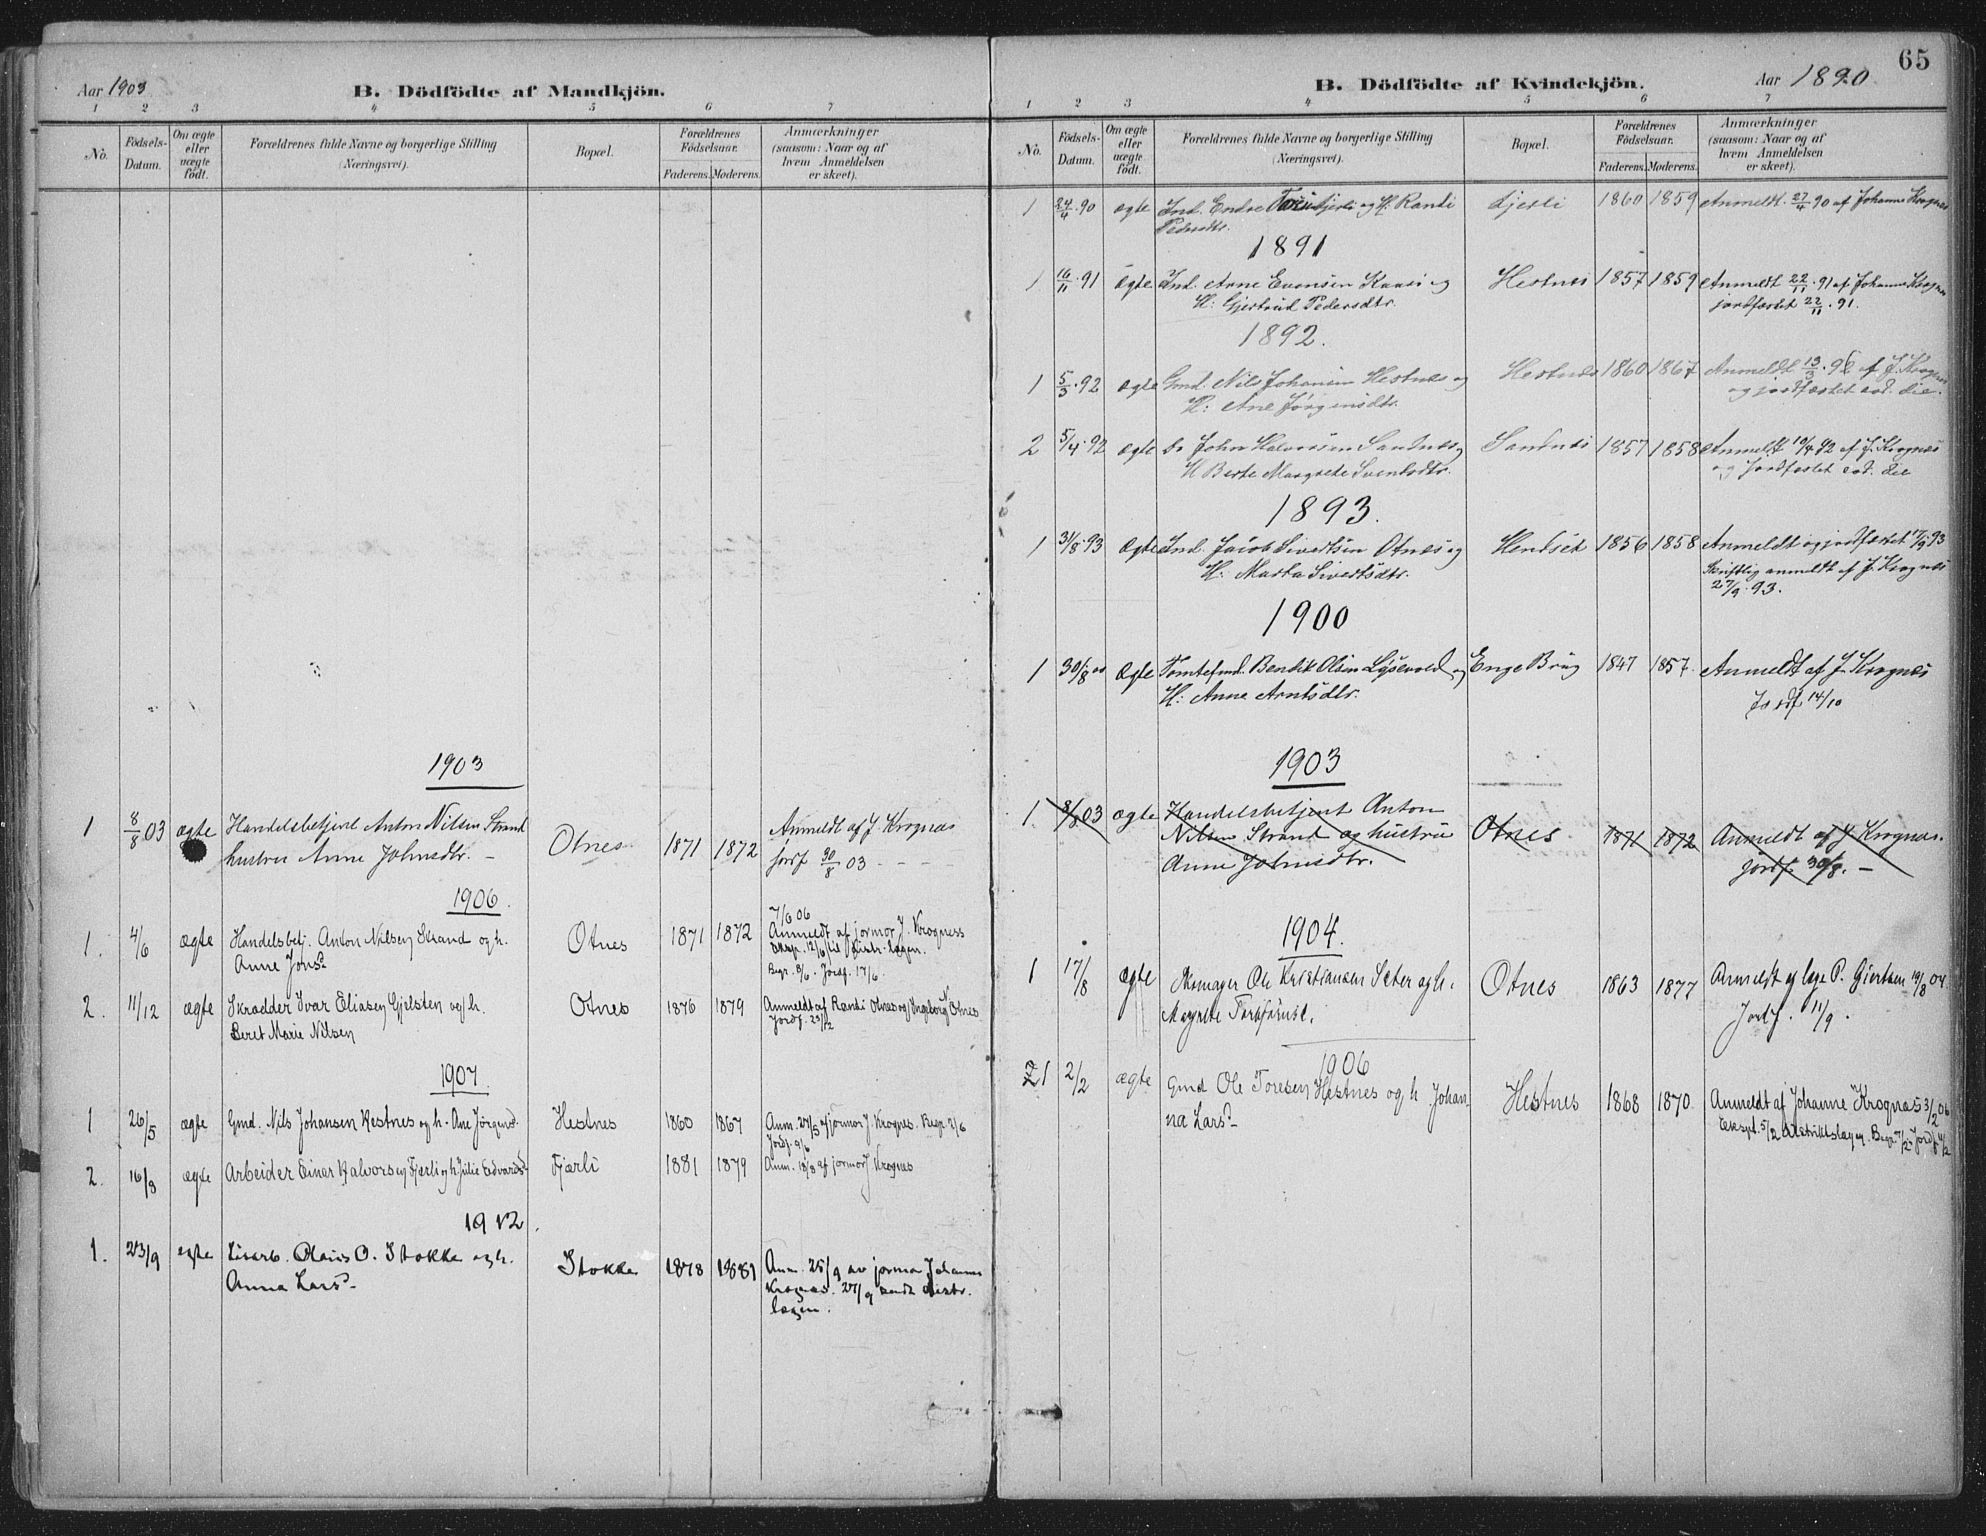 Aar 1903
B. Dödfödte af Mandkjön.
1 2 3 4 5 6 7
No.
Födsels-Datum.
Om ægte eller uægte födt.
Forældrenes fulde Navne og borgerlige Stilling (Næringsvei).
Bopæl.
Forældrenes Födselsaar.
Faderens. Moderens.
Anmærkninger (saasom: Naar og af hvem Anmeldelsen er skeet).
1903
1 8/8 03 ægte Handelsbetjent Anton Nilsen Strand Otnes 1871 1872 Anmeldt af J. Krognæs
hustru Anne Johnsdtr. – jordf 30/8 03 – –
1906.
7/6 06
1. 4/6 ægte Handelsbetj. Anton Nilsen Strand og h. Otnes 1871 1872 Anmeldt af jormor J. Krogness
Anne Jonsd. 12/6 til Distr. lægen.
Begr. 8/6. Jordf. 17/6.
2. 11/12 ægte Skrædder Ivar Eliasen Gjelsten og h. Otnes 1876 1879 Anmeldt af Randi Otnes og Ingeborg Otnes
Beret Marie Nilsen Jordf. 23/12
1907.
1 26/5 ægte Gmd. Nils Johansen Hestnes og h. Ane Jörgensd. Hestnes 1860 1867 Anm. 27/5 af jormor J. Krognes. Begr. 2/6
Jordf. 9/6
2. 16/8 ægte Arbeider Einer Halvorsen Fjærli og h Julie Edvardsd. Fjærli 1881 1879 Anm. 18/8 af jormor J Krognes
1912.
1. 23/9 egte Olaus O. Stokke og h. Stokke 1878 1881 Anm. 25/9 av jormor Johanne
Anna Larsd. Krognæs. 27/9 sendt distr.
lægen.
65
B. Dödfödte af Kvindekjön.
Aar 1890
1 2 3 4 5 6 7
No.
Födsels-Datum.
Om ægte eller uægte födt.
Forældrenes fulde Navne og borgerlige Stilling (Næringsvei).
Bopæl.
Forældrenes Födselsaar.
Faderens. Moderens.
Anmærkninger (saasom: Naar og af hvem Anmeldelsen er skeet).
1 24/4 90 ægte Ind. Endre og H: Randi 1860 1859 Anmeldt 27/4 90 af Johanne Krognæs
Pedersdtr.
1891
1 16/11 91 ægte Ind. Arne Evensen og Hestnes 1857 1859 Anmeldt 22/11 91 af Johanne Krognæs
H: Gjertrud Pedersdtr. jordfæstet 22/11 91.
1892.
1 5/3 92 ægte Gmd. Nils Johansen Hestnes og Hestnes 1860 1867 Anmeldt 13/3 92 af J. Krognæs
H: Ane Jörgensdtr. og jordfæstet eod. die.
2 5/4 92 ægte John Halvorsen Sandnes og Sandnes 1857 1858 Anmeldt 10/4 92 af J. Krognæs
H Berte Margrete Sventsdtr. og jordfæstet eod. die
1893.
1 31/8 93 ægte Ind. Jacob Sivertsen Otnes og Hendset 1856 1858 Anmeldt og jordfæstet 17/9 93
H: Marta Sivertsdtr. Skriftlig anmeldt af J. Krognæs
27/9 93.
1900
1 30/8 00 ægte Tomtefmd. Bendik Olsen og Enge Brug 1847 1857. Anmeldt af J. Krognæs
H: Anne Arntsdtr. Jordf 14/10
1903
1. 8/8 03 ægte Handelsbetjent Anton Otnes 1871 1872 Anmeldt af J. Krognæs.
Nilsen Strand og hustru jordf. 30/8. –
Anne Johnsdtr.
1904.
1 17/8 ægte Ole Kristiansen Seter og h. Otnes 1863 1877 Anmeldt af læge P. Giertsen 19/8 04.
Magrete Jordf. 11/9.
1906
1 2/2 ægte Gmd Ole Toresen Hestnes og h Johan- Hestnes 1868 1870 Anmeldt af Johanne Krognæs 3/2 06
na Larsd. Ekspt. 5/2 distriktslægen. Begr. 7/2